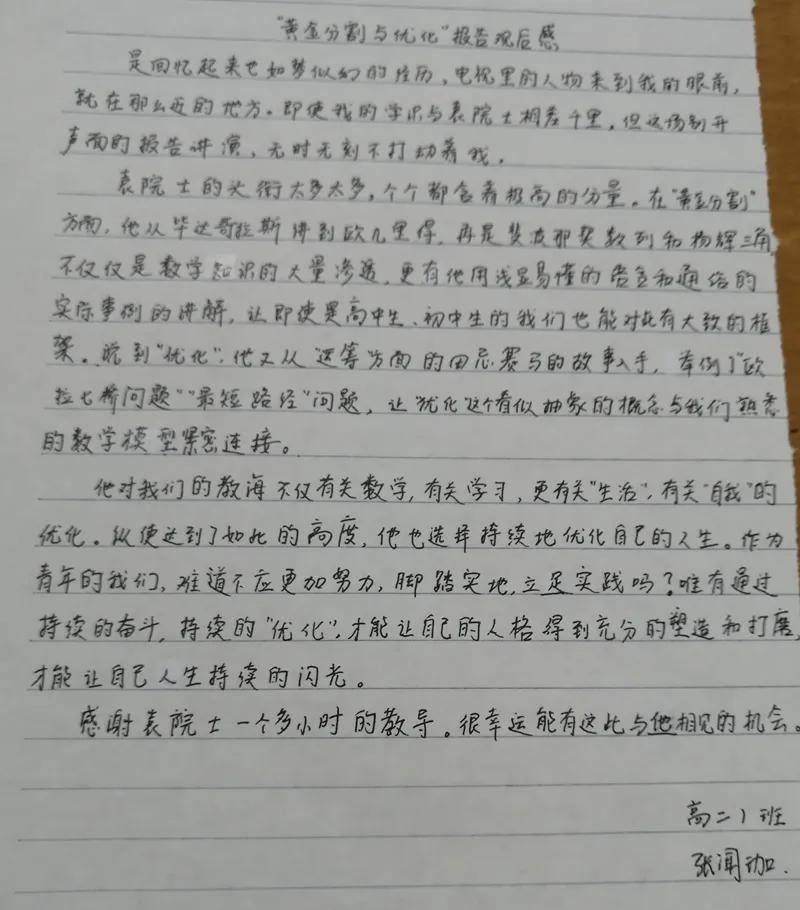 “黄金分割与优化”报告观后感
是回忆起来也如梦似幻的经历，电视里的人物来到我的眼前，
就在那么近的地方。即使我的学识与袁院士相差千里，但这场别开
声面的报告讲演，无时无刻不打动着我。
袁院士的头衔太多太多，个个都含着极高的分量。在“黄金分割”
方面，他从毕达哥拉斯讲到欧几里得，再是斐波那契数列和杨辉三角，
不仅仅是数学知识的大量渗透，更有他用浅显易懂的语言和通俗的
实际事例的讲解，让即使是高中生、初中生的我们也能对此有大致的框
架。说到“优化”，他又从“运筹”方面的田忌赛马的故事入手，举例了“欧
拉七桥问题”“最短路径”问题，让“优化”这个看似抽象的概念与我们熟悉
的数学模型紧密连接。
他对我们的教海不仅有关数学，有关学习，更有关“生活”，有关“自我”的
优化。纵使达到了如此的高度，他也选择持续地优化自己的人生。作为
青年的我们，难道不应更加努力，脚踏实地，立足实践吗？唯有通过
持续的奋斗，持续的“优化”，才能让自己的人格得到充分的塑造和打磨，
才能让自己人生持续的闪光。
感谢袁院士一个多小时的教导。很幸运能有这此与他相见的机会。
高二1班
张闻珈.